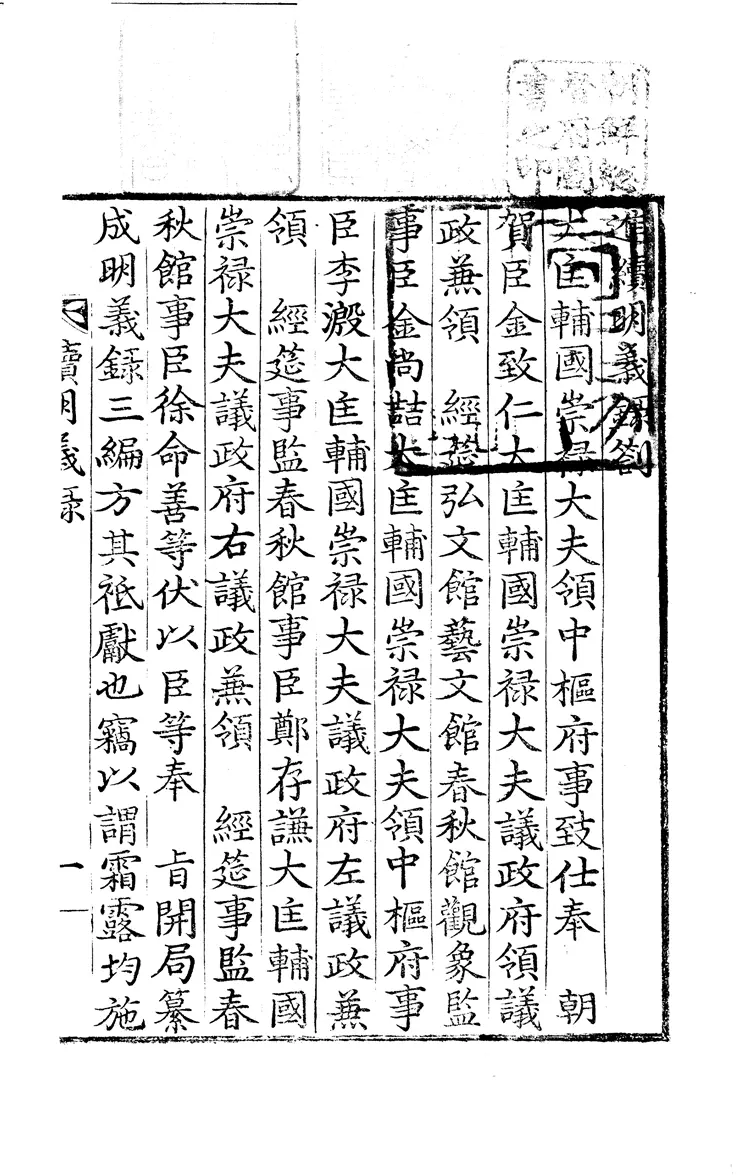 進續明義錄劄
大匡輔國崇祿大夫領中樞府事致仕奉　朝
賀臣金致仁大匡輔國崇祿大夫議政府領議
政兼領　經筵弘文館藝文館春秋館觀象監
事臣金尚喆大匡輔國崇祿大夫領中樞府事
臣李溵大匡輔國崇祿大夫議政府左議政兼
領　經筵事監春秋館事臣鄭存謙大匡輔國
崇祿大夫議政府右議政兼領　經筵事監春
秋館事臣徐命善等伏以臣等奉　旨開局纂
成明義錄三編方其祗獻也竊以謂霜露均施
續明義錄
一